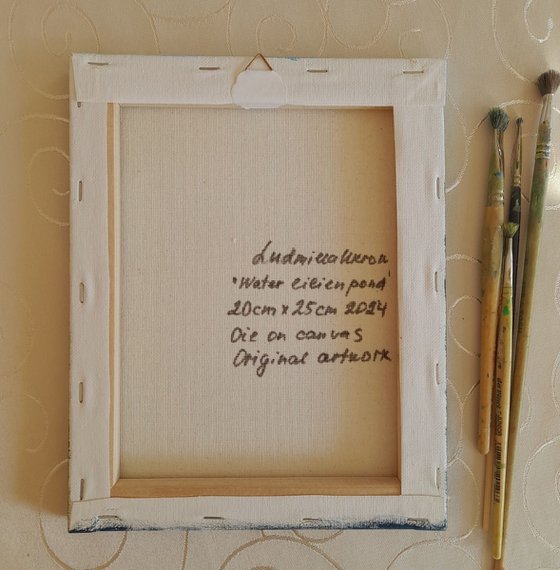 Ludmilla Ukrow
"Water lilien pond"
20cm x 25cm 2024
Oil on canvas
Original artwork